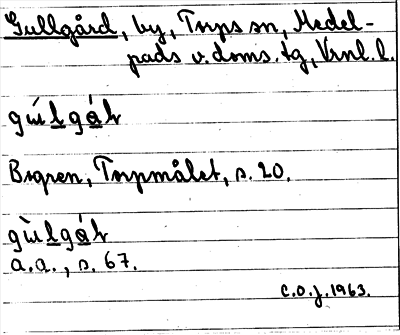 Gullgård, by, Torps sn, Medel-
pads v. doms. tg, Vrnl. l.
gùlgát
Bogren, Torpmålet, s. 20.
gùlgát
a.a., s. 67.
C.O.J. 1963.